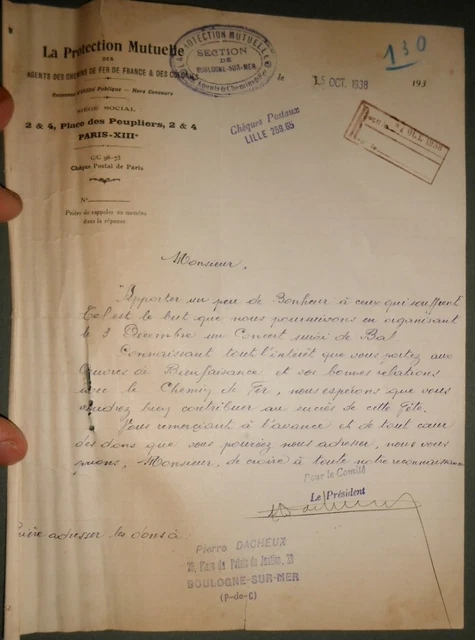 La Protection Mutuelle
DES
AGENTS DES CHEMINS DE FER DE FRANCE & DES COLONIES
Reconnue d'Utilité Publique — Hors Concours
SIÈGE SOCIAL
2 & 4, Place des Peupliers, 2 & 4
PARIS-XIIIe
C/C 96-73
Chèque Postal de Paris
No
Prière de rappeler ce numéro
dans la réponse
LA PROTECTION MUTUELLE
SECTION
DE
BOULOGNE-SUR-MER
le 15 OCT. 1938 193
130
Chèques Postaux
LILLE
OCT 1938
Monsieur,
"Apporter un peu de Bonheur à ceux qui souffrent
tel est le but que nous poursuivons en organisant
le 3 Décembre un Concert suivi de Bal
Connaissant tout l'intérêt que vous portez aux
Œuvres de Bienfaisance et vos bonnes relations
avec le Chemin de Fer, nous espérons que vous
voudrez bien contribuer au succès de cette fête.
Vous remerciant à l'avance et de tout cœur
des dons que vous pourriez nous adresser, nous vous
prions, Monsieur, de croire à toute notre reconnaissance
Pour le Comité
Le Président
Prière adresser les dons à
Pierre DACHEUX
Place du Palais de Justice,
BOULOGNE-SUR-MER
(P-de-C)